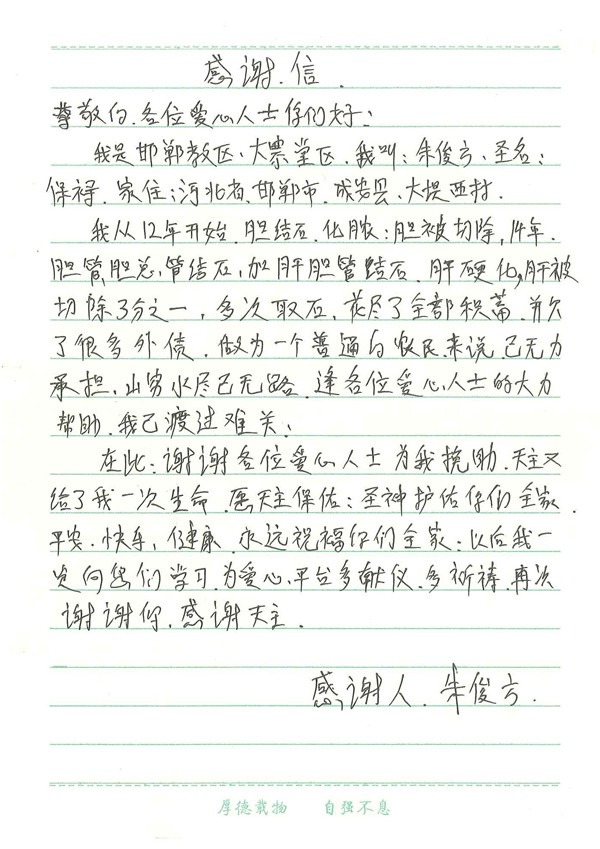 感谢信.
尊敬的.各位爱心人士你们好:
我是邯郸教区、大堂区.我叫:朱俊方、圣名:
保禄.家住:河北省.邯郸市.成安县、大堤西村.
我从12年开始.胆结石.化脓:胆被切除,14年.
胆管,胆总,管结石,加肝胆管结石.肝硬化,肝被
切除3分之一,多次取石,花尽了全部积蓄.并欠
了很多外债.做为一个普通的农民来说已无力
承担,山穷水尽已无路.逢各位爱心人士的大力
帮助.我已渡过难关:
在此:谢谢各位爱心人士为我挽助.天主又
给了我一次生命.愿天主保佑:圣神护佑你们全家.
平安.快乐,健康.永远祝福你们全家:以后我一
定向你们学习.为爱心.平台多献仪.多祈祷.再次
谢谢你.感谢天主.
感谢人.朱俊方.
厚德载物 自强不息